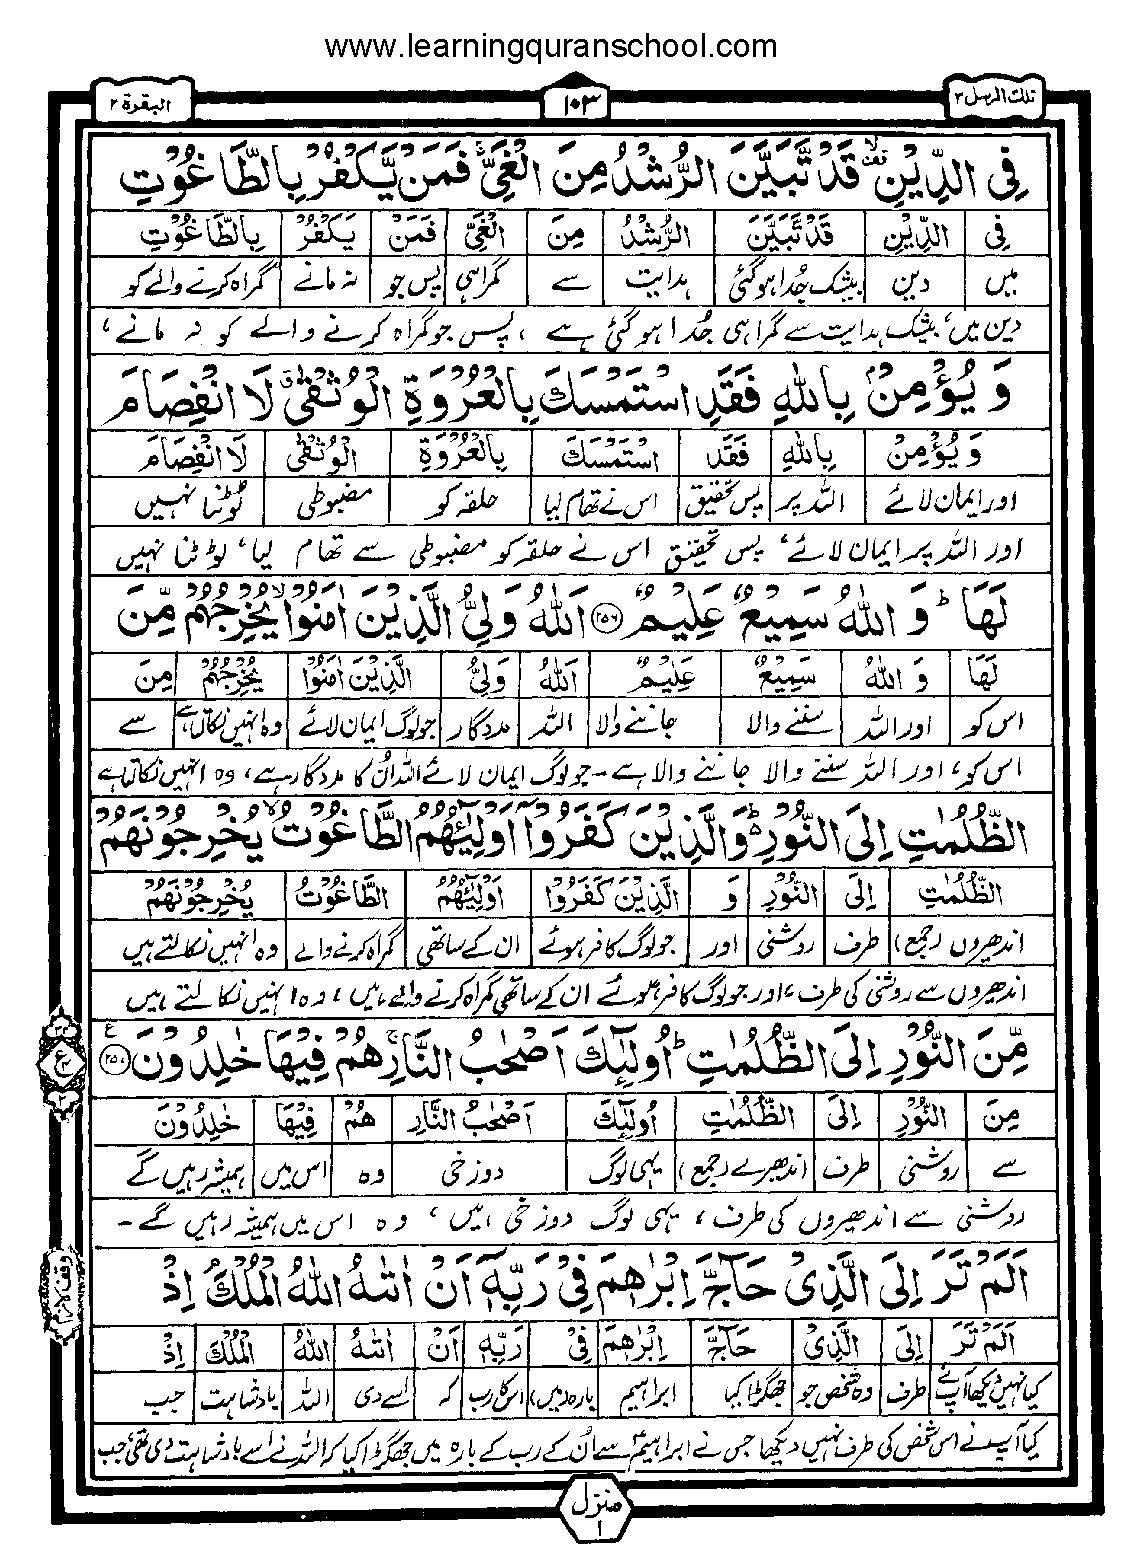 www.learningquranschool.com
تلك الرسل ۳ ۱۰۳ البقرة ۲
فِي الدِّيْنِ قَدْ تَّبَيَّنَ الرُّشْدُ مِنَ الْغَيِّ فَمَنْ يَّكْفُرْ بِالطَّاغُوْتِ
فِي الدِّيْنِ قَدْ تَّبَيَّنَ الرُّشْدُ مِنَ الْغَيِّ فَمَنْ يَكْفُرْ بِالطَّاغُوْتِ
میں دین بیشک جُدا ہوگئی ہدایت سے گمراہی پس جو نہ مانے گمراہ کرنے والے کو
دین میں، بیشک ہدایت سے گمراہی جُدا ہوگئی ہے، پس جو گمراہ کرنے والے کو نہ مانے،
وَ يُؤْمِنْ بِاللّٰهِ فَقَدِ اسْتَمْسَكَ بِالْعُرْوَةِ الْوُثْقٰى لَا انْفِصَامَ
وَ يُؤْمِنْ بِاللّٰهِ فَقَدِ اسْتَمْسَكَ بِالْعُرْوَةِ الْوُثْقٰى لَا انْفِصَامَ
اور ایمان لائے اللہ پر پس تحقیق اس نے تھام لیا حلقہ کو مضبوطی ٹوٹنا نہیں
اور اللہ پر ایمان لائے، پس تحقیق اس نے حلقہ کو مضبوطی سے تھام لیا، لوٹنا نہیں
لَهَا ؕ وَ اللّٰهُ سَمِيْعٌ عَلِيْمٌ ۲۵۶ اَللّٰهُ وَلِيُّ الَّذِيْنَ اٰمَنُوْا يُخْرِجُهُمْ مِّنَ
لَهَا وَ اللّٰهُ سَمِيْعٌ عَلِيْمٌ اَللّٰهُ وَلِيُّ الَّذِيْنَ اٰمَنُوْا يُخْرِجُهُمْ مِنَ
اس کو اور اللہ سننے والا جاننے والا اللہ مددگار جو لوگ ایمان لائے وہ انہیں نکالتا ہے سے
اس کو، اور اللہ سننے والا جاننے والا ہے۔ جو لوگ ایمان لائے اللہ اُن کا مددگار ہے، وہ انہیں نکالتا ہے
الظُّلُمٰتِ اِلَى النُّوْرِ ؕ وَالَّذِيْنَ كَفَرُوْۤا اَوْلِيٰٓـُٔهُمُ الطَّاغُوْتُ يُخْرِجُوْنَهُمْ
الظُّلُمٰتِ اِلَى النُّوْرِ وَ الَّذِيْنَ كَفَرُوْا اَوْلِيٰٓـُٔهُمُ الطَّاغُوْتُ يُخْرِجُوْنَهُمْ
اندھیروں (جمع) طرف روشنی اور جو لوگ کافر ہوئے ان کے ساتھی گمراہ کرنے والے وہ انہیں نکالتے ہیں
اندھیروں سے روشنی کی طرف، اور جو لوگ کافر ہوئے ان کے ساتھی گمراہ کرنے والے ہیں، وہ انہیں نکالتے ہیں
مِّنَ النُّوْرِ اِلَى الظُّلُمٰتِ ؕ اُولٰٓئِكَ اَصْحٰبُ النَّارِ ۚ هُمْ فِيْهَا خٰلِدُوْنَ ۲۵۷ ع
مِنَ النُّوْرِ اِلَى الظُّلُمٰتِ اُولٰٓئِكَ اَصْحٰبُ النَّارِ هُمْ فِيْهَا خٰلِدُوْنَ
سے روشنی طرف اندھیرے (جمع) یہی لوگ دوزخی وہ اس میں ہمیشہ رہیں گے
روشنی سے اندھیروں کی طرف، یہی لوگ دوزخی ہیں، وہ اس میں ہمیشہ رہیں گے۔
اَلَمْ تَرَ اِلَى الَّذِيْ حَآجَّ اِبْرٰهٖمَ فِيْ رَبِّهٖۤ اَنْ اٰتٰىهُ اللّٰهُ الْمُلْكَ ۘ اِذْ
اَلَمْ تَرَ اِلَى الَّذِيْ حَآجَّ اِبْرٰهٖمَ فِيْ رَبِّهٖۤ اَنْ اٰتٰىهُ اللّٰهُ الْمُلْكَ اِذْ
کیا نہیں دیکھا آپ نے طرف وہ شخص جو جھگڑا کیا ابراہیم بارہ (میں) اس کا رب کہ اسے دی اللہ بادشاہت جب
کیا آپ نے اس شخص کی طرف نہیں دیکھا جس نے ابراہیم سے اُن کے رب کے بارہ میں جھگڑا کیا کہ اللہ نے اسے بادشاہت دی تھی، جب
منزل ۱